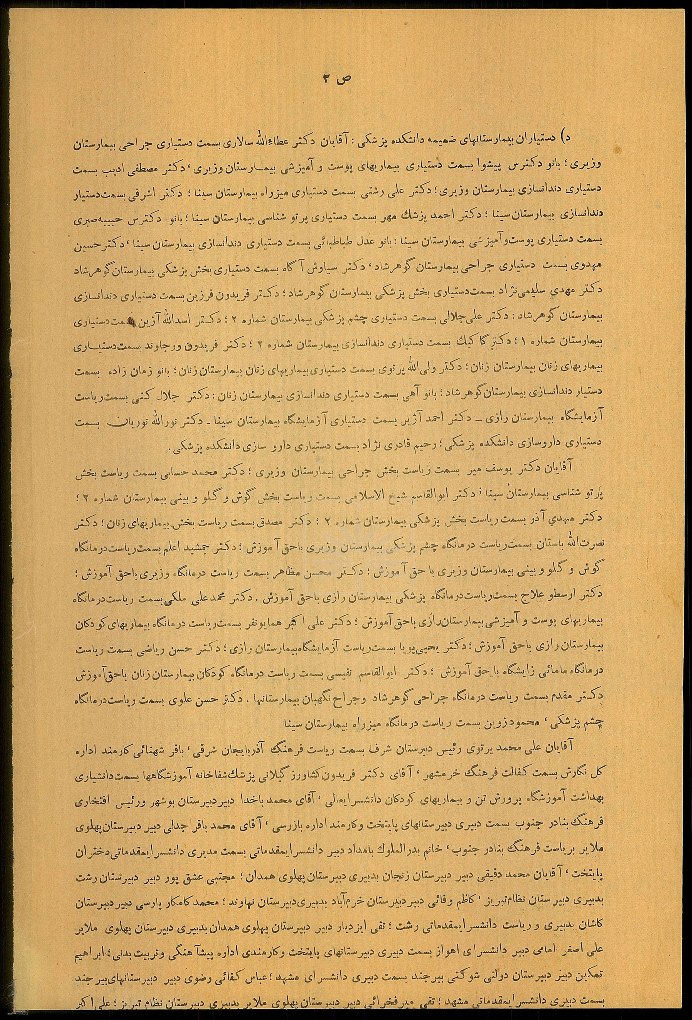 ص ۲
د) دستیاران بیمارستانهای ضمیمه دانشکده پزشکی : آقایان دکتر عطاءالله سالاری بسمت دستیاری جراحی بیمارستان
وزیری ؛ بانو دکترس پیشوا بسمت دستیاری بیماریهای پوست و آمیزشی بیمارستان وزیری ، دکتر مصطفی ادیب بسمت
دستیاری دندانسازی بیمارستان وزیری ؛ دکتر علی رشتی بسمت دستیاری میزراه بیمارستان سینا ؛ دکتر اشرفی بسمت دستیار
دندانسازی بیمارستان سینا ؛ دکتر احمد پزشک مهر بسمت دستیاری پرتو شناسی بیمارستان سینا ؛ بانو دکترس حبیبه صبری
بسمت دستیاری پوست و آمیزشی بیمارستان سینا ؛ بانو عدل طباطبائی بسمت دستیاری دندانسازی بیمارستان سینا ، دکتر حسین
مهدوی بسمت دستیاری جراحی بیمارستان گوهرشاد ، دکتر سیاوش آگاه بسمت دستیاری بخش پزشکی بیمارستان گوهرشاد
دکتر مهدی سلیمی نژاد بسمت دستیاری بخش پزشکی بیمارستان گوهرشاد ؛ دکتر فریدون فرزین بسمت دستیاری دندانسازی
بیمارستان گوهرشاد : دکتر علی جلالی بسمت دستیاری چشم پزشکی بیمارستان شماره ۲ ؛ دکتر اسدالله آژین بسمت دستیاری
بیمارستان شماره ۱ ؛ دکتر گاگیک بسمت دستیاری دندانسازی بیمارستان شماره ۲ ؛ دکتر فریدون ورجاوند بسمت دستیاری
بیماریهای زنان بیمارستان زنان ؛ دکتر ولی الله پرتوی بسمت دستیاری بیماریهای زنان بیمارستان زنان ؛ بانو زمان زاده بسمت
دستیار دندانسازی بیمارستان گوهرشاد ؛ بانو آهی بسمت دستیاری دندانسازی بیمارستان زنان : دکتر جلال کنی بسمت ریاست
آزمایشگاه بیمارستان رازی ــ دکتر احمد آژیر بسمت دستیاری آزمایشگاه بیمارستان سینا ـ دکتر نورالله نوریان بسمت
دستیاری داروسازی دانشکده پزشکی ؛ رحیم قادری نژاد بسمت دستیاری دارو سازی دانشکده پزشکی .
آقایان دکتر یوسف میر بسمت ریاست بخش جراحی بیمارستان وزیری ؛ دکتر محمد حسابی بسمت ریاست بخش
پرتو شناسی بیمارستان سینا ؛ دکتر ابوالقاسم شیخ الاسلامی بسمت ریاست بخش گوش و گلو و بینی بیمارستان شماره ۲ ؛
دکتر مهدی آذر بسمت ریاست بخش پزشکی بیمارستان شماره ۲ ؛ دکتر مصدق بسمت ریاست بخش بیماریهای زنان ؛ دکتر
نصرت الله باستان بسمت ریاست درمانگاه چشم پزشکی بیمارستان وزیری با حق آموزش ؛ دکتر جمشید اعلم بسمت ریاست درمانگاه
گوش و گلو و بینی بیمارستان وزیری با حق آموزش ؛ دکتر محسن مظاهر بسمت ریاست درمانگاه وزیری با حق آموزش ؛
دکتر ارسطو علاج بسمت ریاست درمانگاه پزشکی بیمارستان رازی با حق آموزش . دکتر محمد علی ملکی بسمت ریاست درمانگاه
بیماریهای پوست و آمیزشی بیمارستان رازی با حق آموزش ؛ دکتر علی اکبر همایونفر بسمت ریاست درمانگاه بیماریهای کودکان
بیمارستان رازی با حق آموزش ؛ دکتر یحیی پویا بسمت ریاست آزمایشگاه بیمارستان رازی ؛ دکتر حسن ریاضی بسمت ریاست
درمانگاه مامائی زایشگاه با حق آموزش ؛ دکتر ابوالقاسم نفیسی بسمت ریاست درمانگاه کودکان بیمارستان زنان با حق آموزش
دکتر مقدم بسمت ریاست درمانگاه جراحی گوهرشاد و جراح نگهبان بیمارستانها . دکتر حسن علوی بسمت ریاست درمانگاه
چشم پزشکی ، محمود زوین بسمت ریاست درمانگاه میزراه بیمارستان سینا
آقایان علی محمد پرتوی رئیس دبیرستان شرف بسمت ریاست فرهنگ آذربایجان شرقی ، باقر شهنائی کارمند اداره
کل نگارش بسمت کفالت فرهنگ خرمشهر ، آقای دکتر فریدون کشاورز گیلانی پزشک شفاخانه آموزشگاهها بسمت دانشیاری
بهداشت آموزشگاه پرورش تن و بیماریهای کودکان دانشسرایعالی ، آقای محمد باخدا دبیر دبیرستان بوشهر و رئیس افتخاری
فرهنگ بنادر جنوب بسمت دبیری دبیرستانهای پایتخت و کارمند اداره بازرسی ، آقای محمد باقر جدلی دبیر دبیرستان پهلوی
ملایر بریاست فرهنگ بنادر جنوب ، خانم بدرالملوک بامداد دبیر دانشسرایمقدماتی بسمت مدیری دانشسرایمقدماتی دختران
پایتخت ، آقایان محمد دقیقی دبیر دبیرستان زنجان بدبیری دبیرستان پهلوی همدان ؛ مجتبی عشق پور دبیر دبیرستان رشت
بدبیری دبیرستان نظام تبریز ، کاظم وقائی دبیر دبیرستان خرم آباد بدبیری دبیرستان نهاوند ؛ محمد کامکار پارسی دبیر دبیرستان
کاشان بدبیری و ریاست دانشسرایمقدماتی رشت ؛ تقی ایزدیار دبیر دبیرستان پهلوی همدان بدبیری دبیرستان پهلوی ملایر
علی اصغر امامی دبیر دانشسرای اهواز بسمت دبیری دبیرستانهای پایتخت و کارمندی اداره پیش آهنگی و تربیت بدنی ؛ ابراهیم
تمکین دبیر دبیرستان دولتی شوکتی بیرجند بسمت دبیری دانشسرای مشهد ؛ عباس کفائی رضوی دبیر دبیرستانهای بیرجند
بسمت دبیری دانشسرایمقدماتی مشهد ؛ تقی میرفخرائی دبیر دبیرستان پهلوی ملایر بدبیری دبیرستان نظام تبریز ؛ علی اکبر